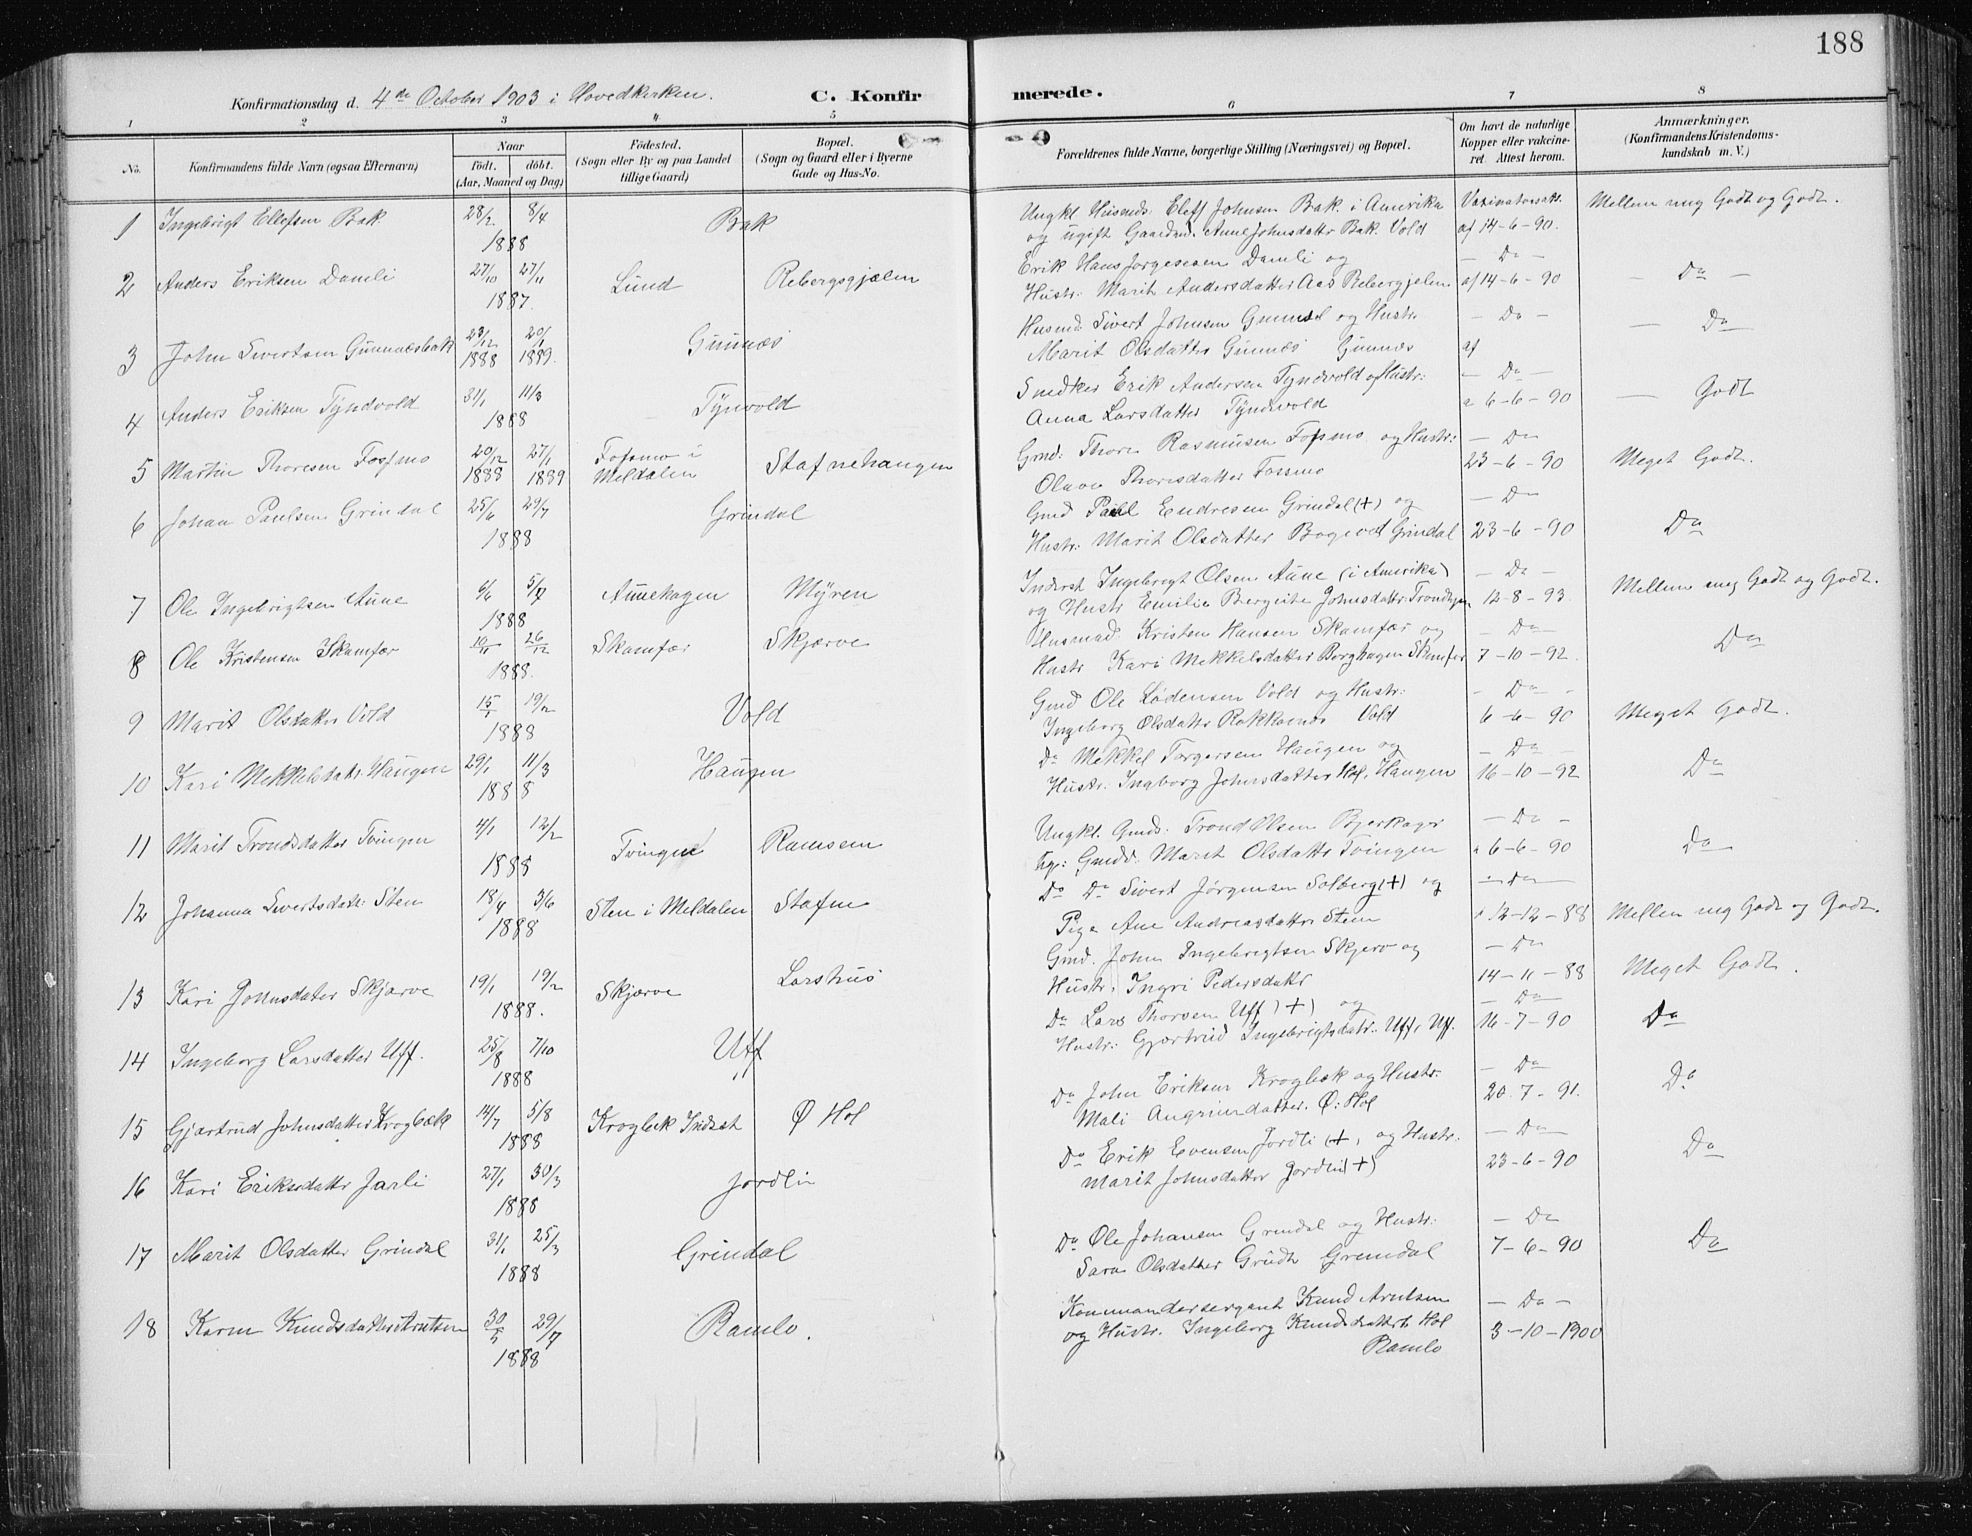 188
Konfirmationsdag d. 4de October 1903 i Hovedkirken. C. Konfirmerede.
1 2 3 4 5 6 7 8
No.
Konfirmandens fulde Navn (ogsaa Efternavn)
Naar
födt. döbt.
(Aar, Maaned og Dag)
Födested.
(Sogn eller By og paa Landet
tillige Gaard)
Bopæl.
(Sogn og Gaard eller i Byerne
Gade og Hus-No.
Forældrenes fulde Navne, borgerlige Stilling (Næringsvei) og Bopæl.
Om havt de naturlige
Kopper eller vakcine-
ret. Attest herom.
Anmærkninger.
(Konfirmandens Kristendoms-
kundskab m. V.)
1 Ingebrigt Ellefsen Bak 28/2 8/4 1888 Bak
Ungkl Husmds: Elef Johnsen Bak. i Amerika
og ugift Gaardm. Ane Johnsdatter Bak. Vold
af 14-6-90. Mellem mg Godt og Godt.
2 Anders Eriksen Damli 27/10 27/11 1887. Lund Rebergsgjælen
Erik Hans Jørgensen Damli og
Hustr: Marit Andersdatter Aas Rebergjelen
- Do - af 14-6-90 - Do -
3 John Sivertsen Gunnæsbak 23/12 1888 20/1 1889. Gunnæs
Husmd Sivert Johnsen Gunnæs og Hustr
Marit Olsdatter Gunnæs Gunnæs
- Do - af - Do
4 Anders Eriksen Tyndvold 31/1 11/3 1888 Tynvold
Snedker Erik Andersen Tyndvold og Hustr:
Anna Larsdatter Tyndvold
- Do - a 6-6-90 - Godt
5 Martin Thoresen Fossmo 20/12 1888 27/1 1889 Fossmo i
Meldalen Stafnehaugen
Gmd: Thore Rasmusen Fossmo og Hustr:
Olava Thoresdatter Fossmo
- Do 23-6-90 Meget Godt.
6 Johan Paulsen Grindal 25/6 29/7 1888 Grindal
Gmd Paul Endresen Grindal (+) og
Hustr: Marit Olsdatter Grindal
- Do 23-6-90 Do
7 Ole Ingebrigtsen Aune 6/6 5/7 1888 Aunehagen Myren
Inderst Ingebrigt Olsen Aune (i Amerika)
og Hustr Emilie Bergitte Johnsdatter Trondhjem
- Do - 12-8-93. Mellem mg Godt og Godt.
8 Ole Kristensen Skamfær 19/11 26/12 1888. Skamfær Skjærve
Husmad. Kristen Hansen Skamfær og
Hustr Kari Mekkelsdatter Borghagen Skamfer
- Do - 7-10-92. Do
9 Marit Olsdatter Vold 15/1 19/2 1888 Vold
Gmd Ole Lødensen Vold og Hustr:
Ingeborg Olsdatter Rokkones Vold
- Do - 6-6-90 Meget Godt.
10 Kari Mekkelsdatr Haugen 29/1 11/3 1888 Haugen
Do Mekkel Torgersen Haugen og
Hustr: Ingborg Johnsdatter Hol, Haugen
- Do - 16-10-92 Do
11 Marit Trondsdatter Tvingen 4/1 12/2 1888 Tvingen Ramsem
Ungkl. Gmds: Trond Olsen Bjerkager
Marit Olsdatter Tvingen
- Do - a 6-6-90 Do
12 Johanna Sivertsdatr: Sten 18/4 3/6 1888 Sten i Meldalen Stafne
Do Do Sivert Jørgensen Solberg (+) og
Pige Ane Andreasdatter Steen
- Do - a 12-12-88 Mellem mg Godt og Godt.
13 Kari Johnsdater Skjærve 19/1 19/2 1888. Skjærve Larshus
Gmd. John Ingebrigtsen Skjerv og
Hustr, Ingri Pedersdatr
- Do 14-11-88 Meget Godt.
14 Ingeborg Larsdatter Uff. 25/8 7/10 1888 Uff
Do Lars Thorsen Uff (+) og
Hustr: Gjertrud Ingebrigtsdatr: Uff, Uff.
- Do 16-7-90 Do
15 Gjertrud Johnsdatter Krogbæk 14/7 5/8 1888 Krogbek Indset Ø Hol
Do John Eriksen Krogbek og Hustr:
Mali Angrimdatter. Ø: Hol
- Do 20.7-91. Do
16 Kari Eriksdattr Jarli 27/1 30/3 1888 Jordlin
Do Erik Evensen Jordli (+) og Hustr:
Marit Johnsdatter Jordlin (+)
- Do - 23-6-90 Do
17 Marit Olsdatter Grindal 31/1 25/3 1888 Grindal
Do Ole Johansen Grindal og Hustr:
Sara Olsdatter Grindal
- Do 7-6-90 Do
18 Karen Knudsdatter Arntsen 30/5 29/7 1888 Ramlo.
Kommandersergent Knud Arntsen
og Hustr. Ingeborg Knudsdatter Hol
Ramlo
- Do - 3-10-1900